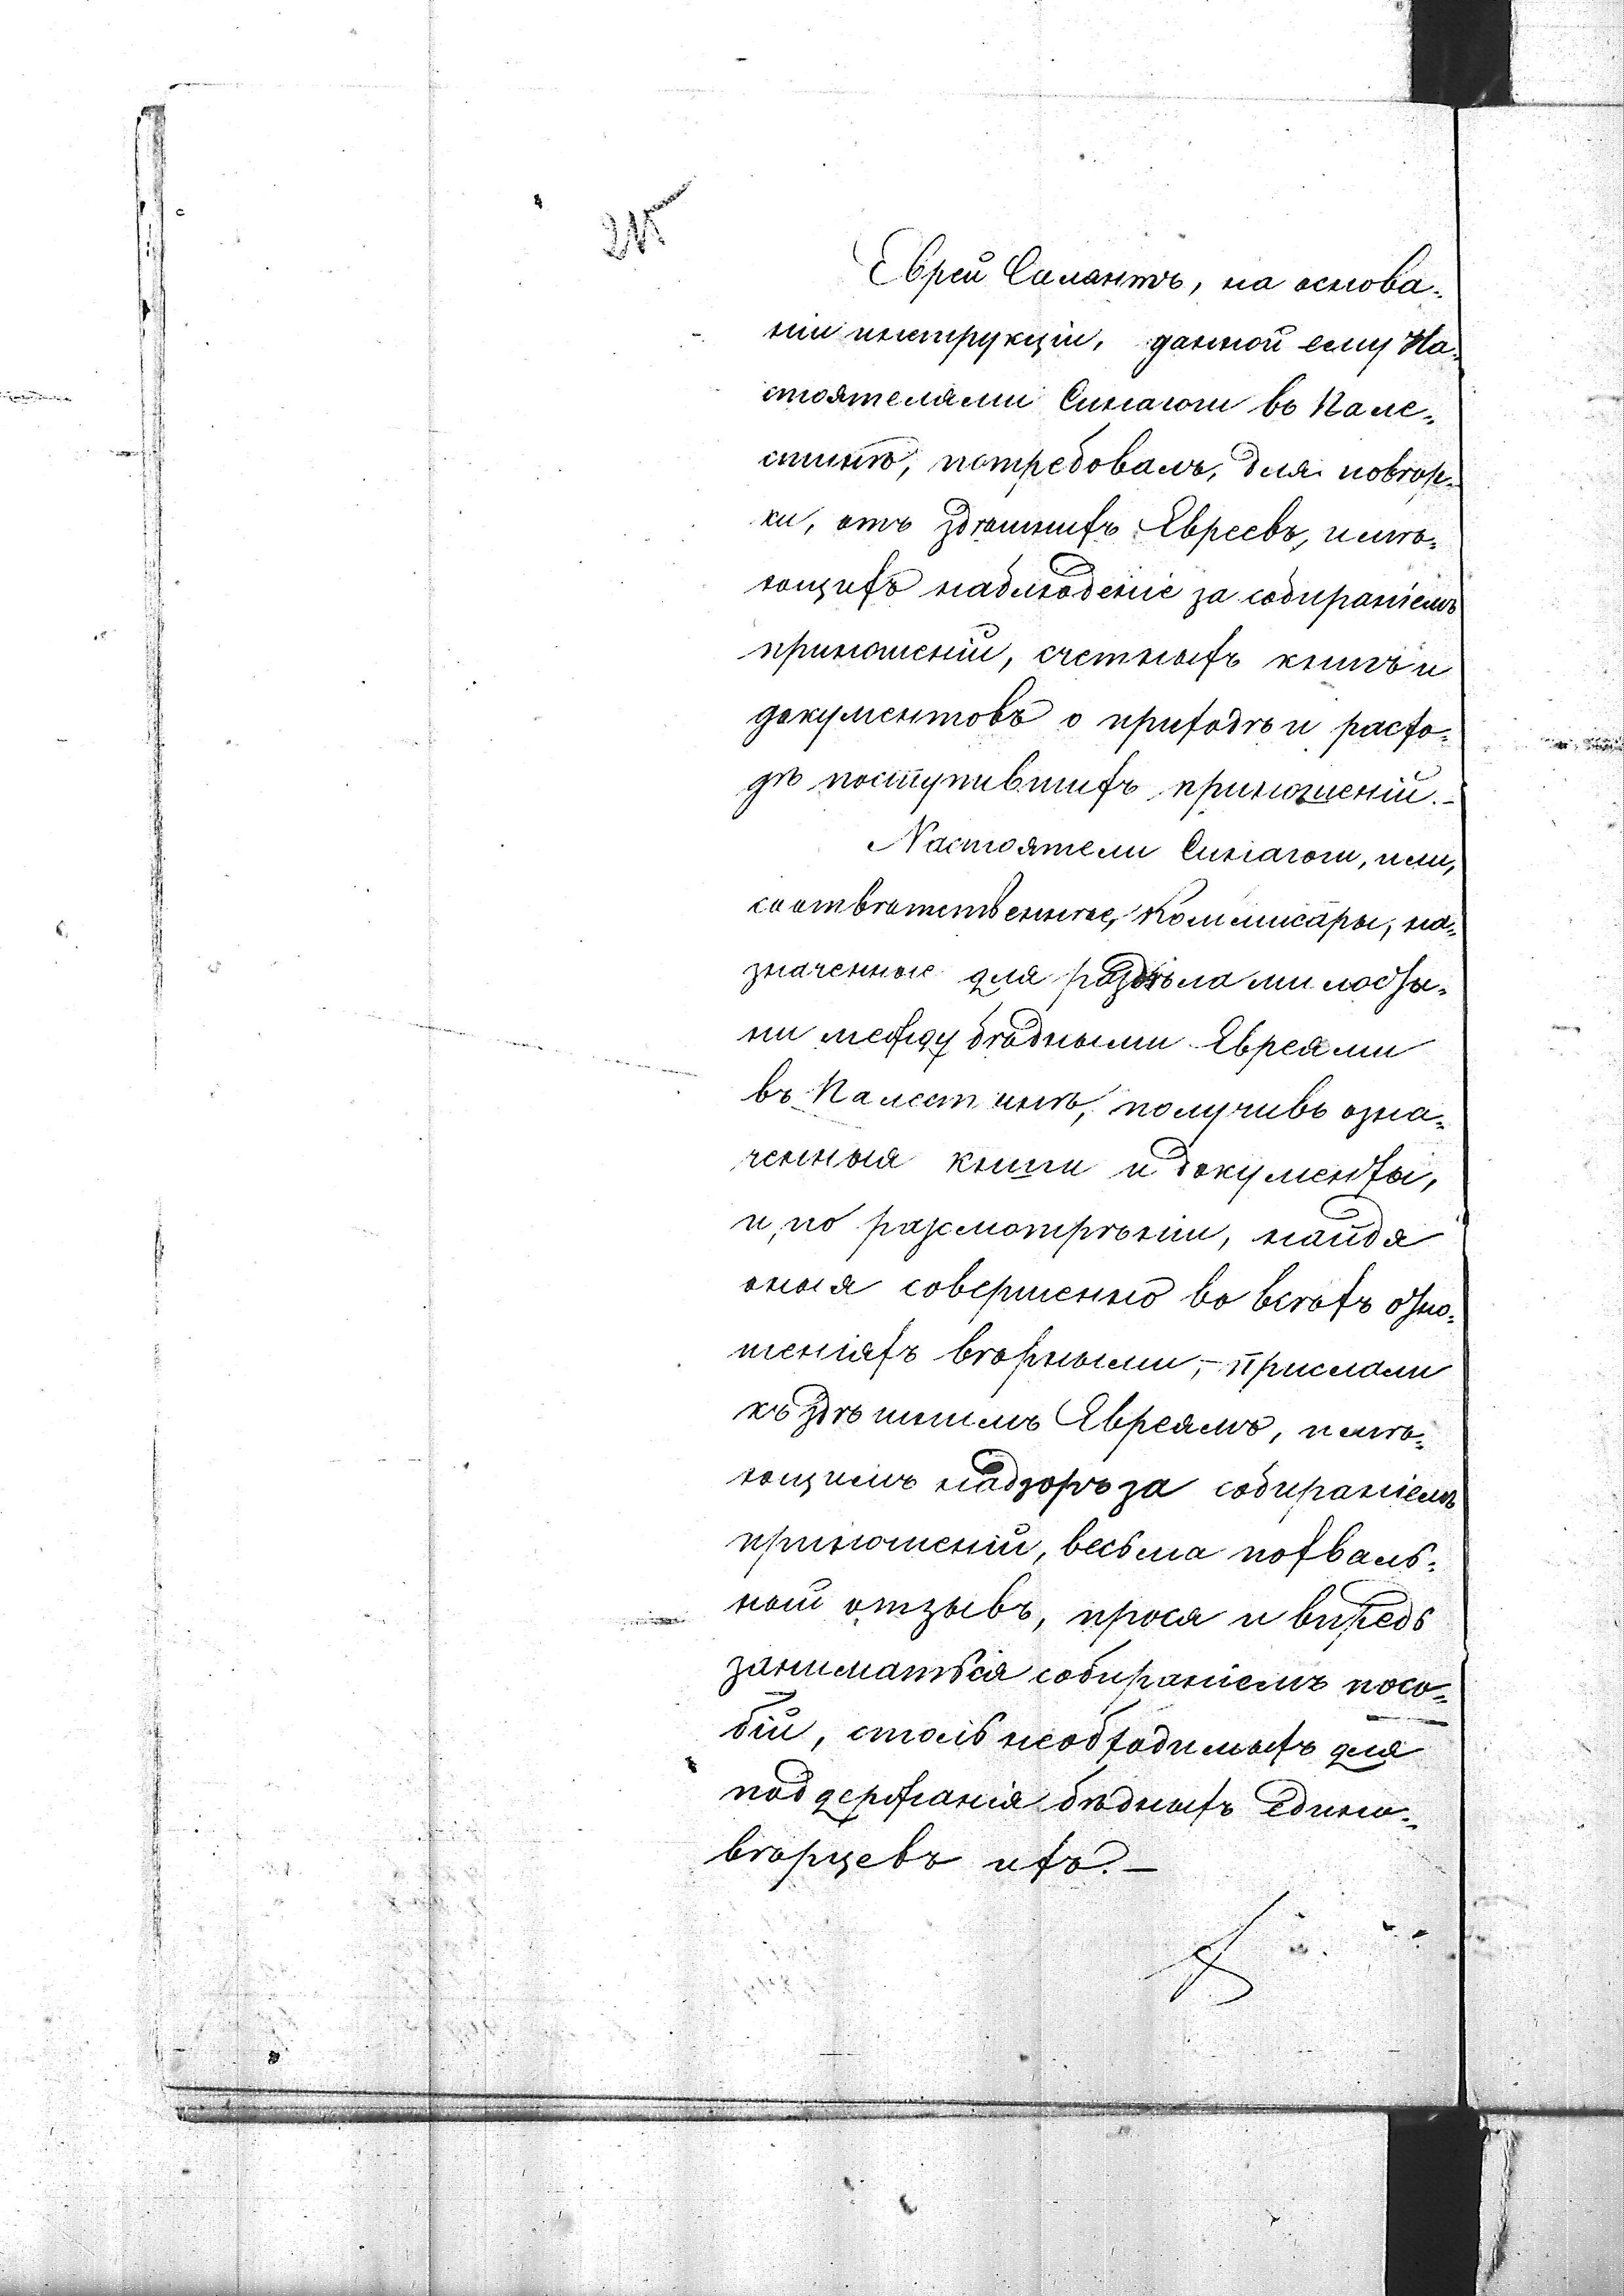 215
Еврей Салантъ, на основа-
ніи инструкціи, данной ему На-
стоятелями Синагоги въ Пале-
стинѣ, потребовалъ, для повѣр-
ки, отъ здѣшнихъ Евреевъ, имѣ-
ющихъ наблюденіе за собираніемъ
приношеній, счетныхъ книгъ и
документовъ о приходѣ и расхо-
дѣ поступившихъ приношеній.-
Настоятели Синагоги, или,
соотвѣтственнѣе, Коммисары, на-
значенные для раздѣла милосты-
ни между бѣдными Евреями
въ Палестинѣ, получивъ озна-
ченныя книги и документы,
и, по разсмотрѣніи, найдя
оныя совершенно во всѣхъ отно-
шеніяхъ вѣрными, - прислали
къ здѣшнимъ Евреямъ, имѣ-
ющимъ надзоръ за собираніемъ
приношеній, весьма похваль-
ный отзывъ, прося и впредь
заниматься собираніемъ посо-
бій, столь необходимыхъ для
поддержанія бѣдныхъ Едино-
вѣрцевъ ихъ.-